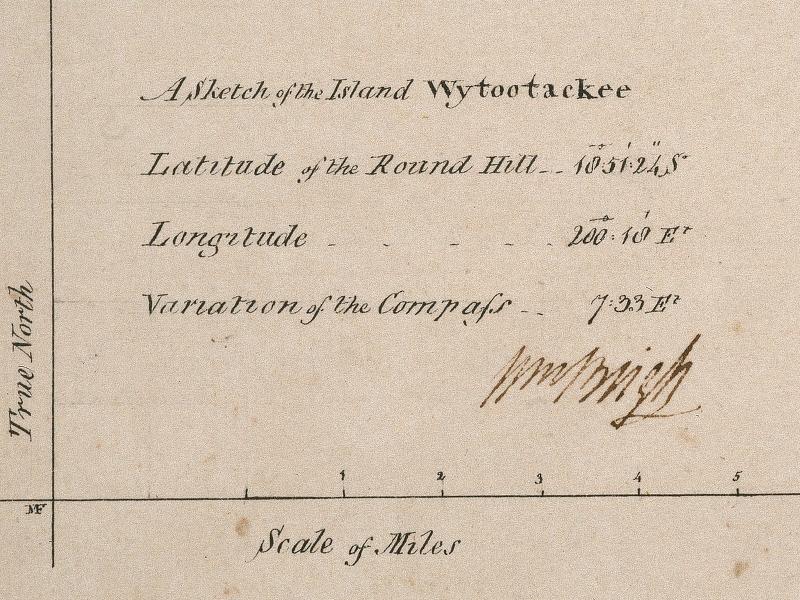 A Sketch of the Island Wytootackee
Latitude of the Round Hill -- 18°:51':24" St
Longitude - - - - - 200°:18' Et
Variation of the Compaſs -- 7:33 Et
Wm Bligh
True North
1 2 3 4 5
Scale of Miles